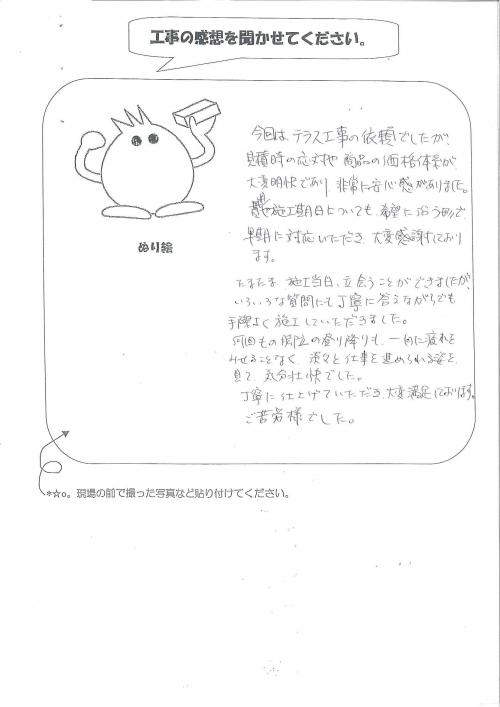 工事の感想を聞かせてください。
今回は、テラス工事の依頼でしたが、
見積時の応対や 商品の価格体系が、
大変明快であり、非常に安心感がありました。
施工期日についても、希望に沿う形で、
早期に対応いただき、大変感謝しており
ます。
ぬり絵
たまたま、施工当日、立会うことができましたが、
いろいろな質問にも丁寧に答えながらでも
手際よく施工していただきました。
何回もの脚立の登り降りも、一向に疲れを
みせることなく、淡々と仕事を進められる姿を、
見て、気分壮快でした。
丁寧に仕上げていただき、大変満足しております。
ご苦労様でした。
*☆o。現場の前で撮った写真など貼り付けてください。